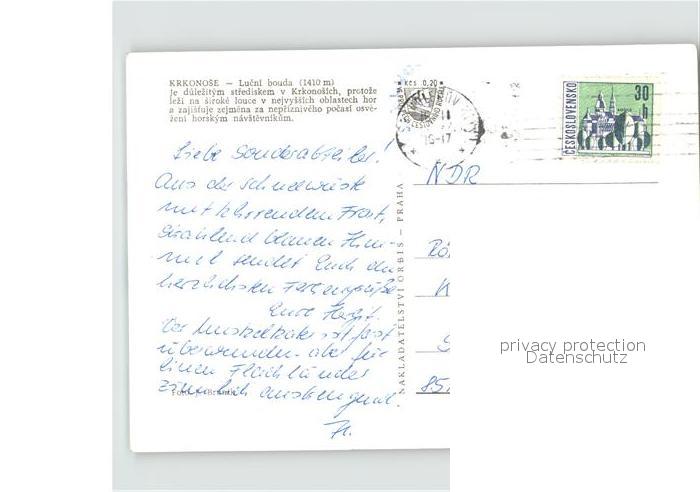 KRKONOŠE — Luční bouda (1410 m)
Je důležitým střediskem v Krkonoších, protože
leží na široké louce v nejvyšších oblastech hor
a zajišťuje zejména za nepříznivého počasí osvě-
žení horským návštěvníkům.
Kčs 0,20
15-17
ČESKOSLOVENSKO
30
h
Liebe Sonderabteiler!
Aus der Schneewüste
mit klirrendem Frost,
strahlend blauem Him-
mel sendet Euch die
herzlichsten Feriengrüße
Eure
Der Muskelkater ist fast
überwunden. aber für
einen Flachländer
ziemlich anstrengend
NAKLADATELSTVÍ ORBIS — PRAHA
NDR
privacy protection
Datenschutz